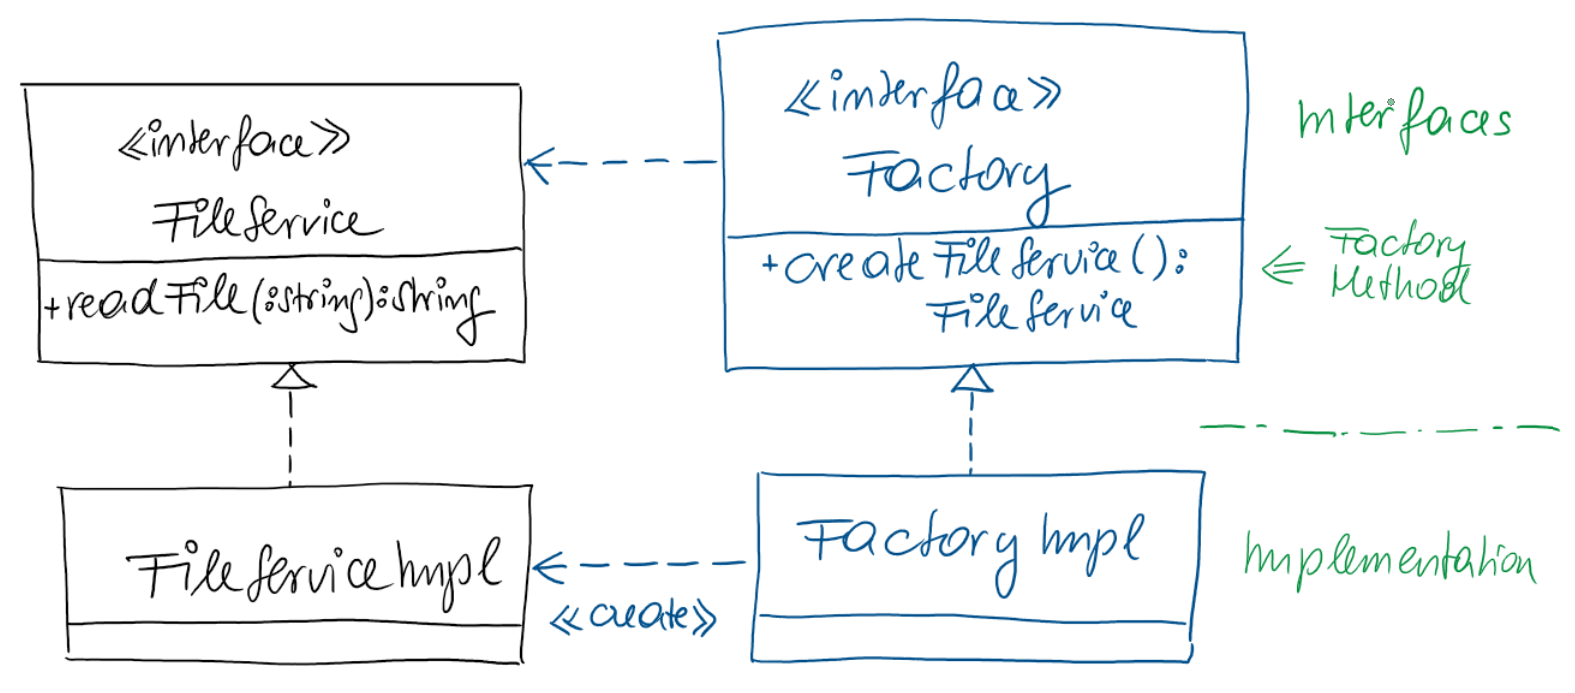 <<interface>>
FileService
+readFile(:string):string
<<interface>>
Factory
+createFileService():
FileService
Interfaces
<= Factory
Method
FileServiceImpl
<<create>>
FactoryImpl
Implementation